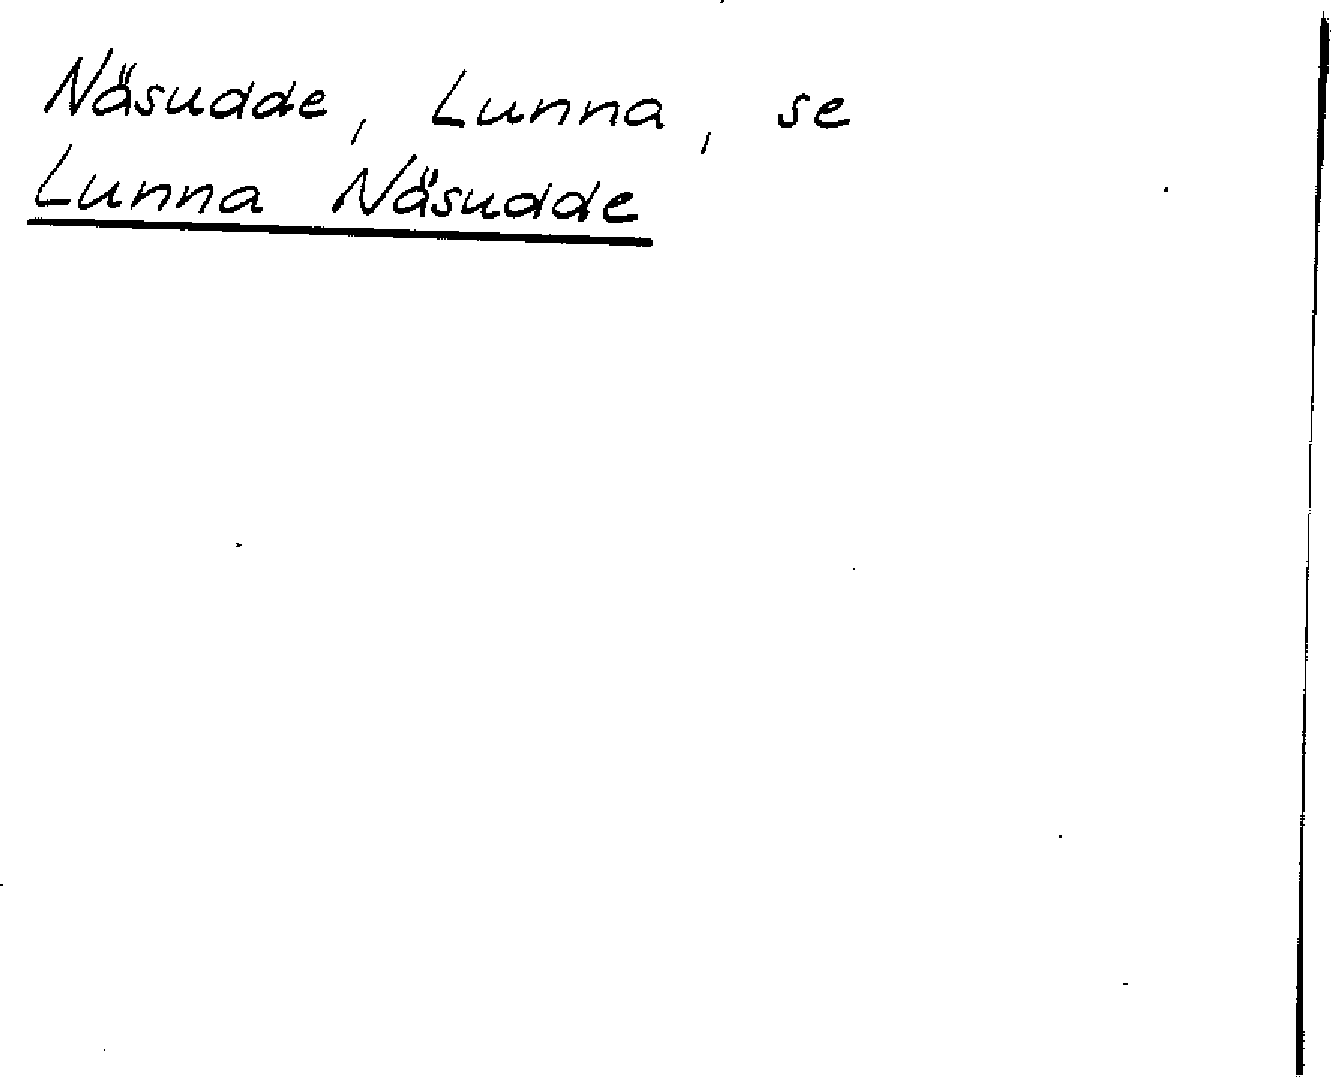 Näsudde, Lunna, se
Lunna Näsudde